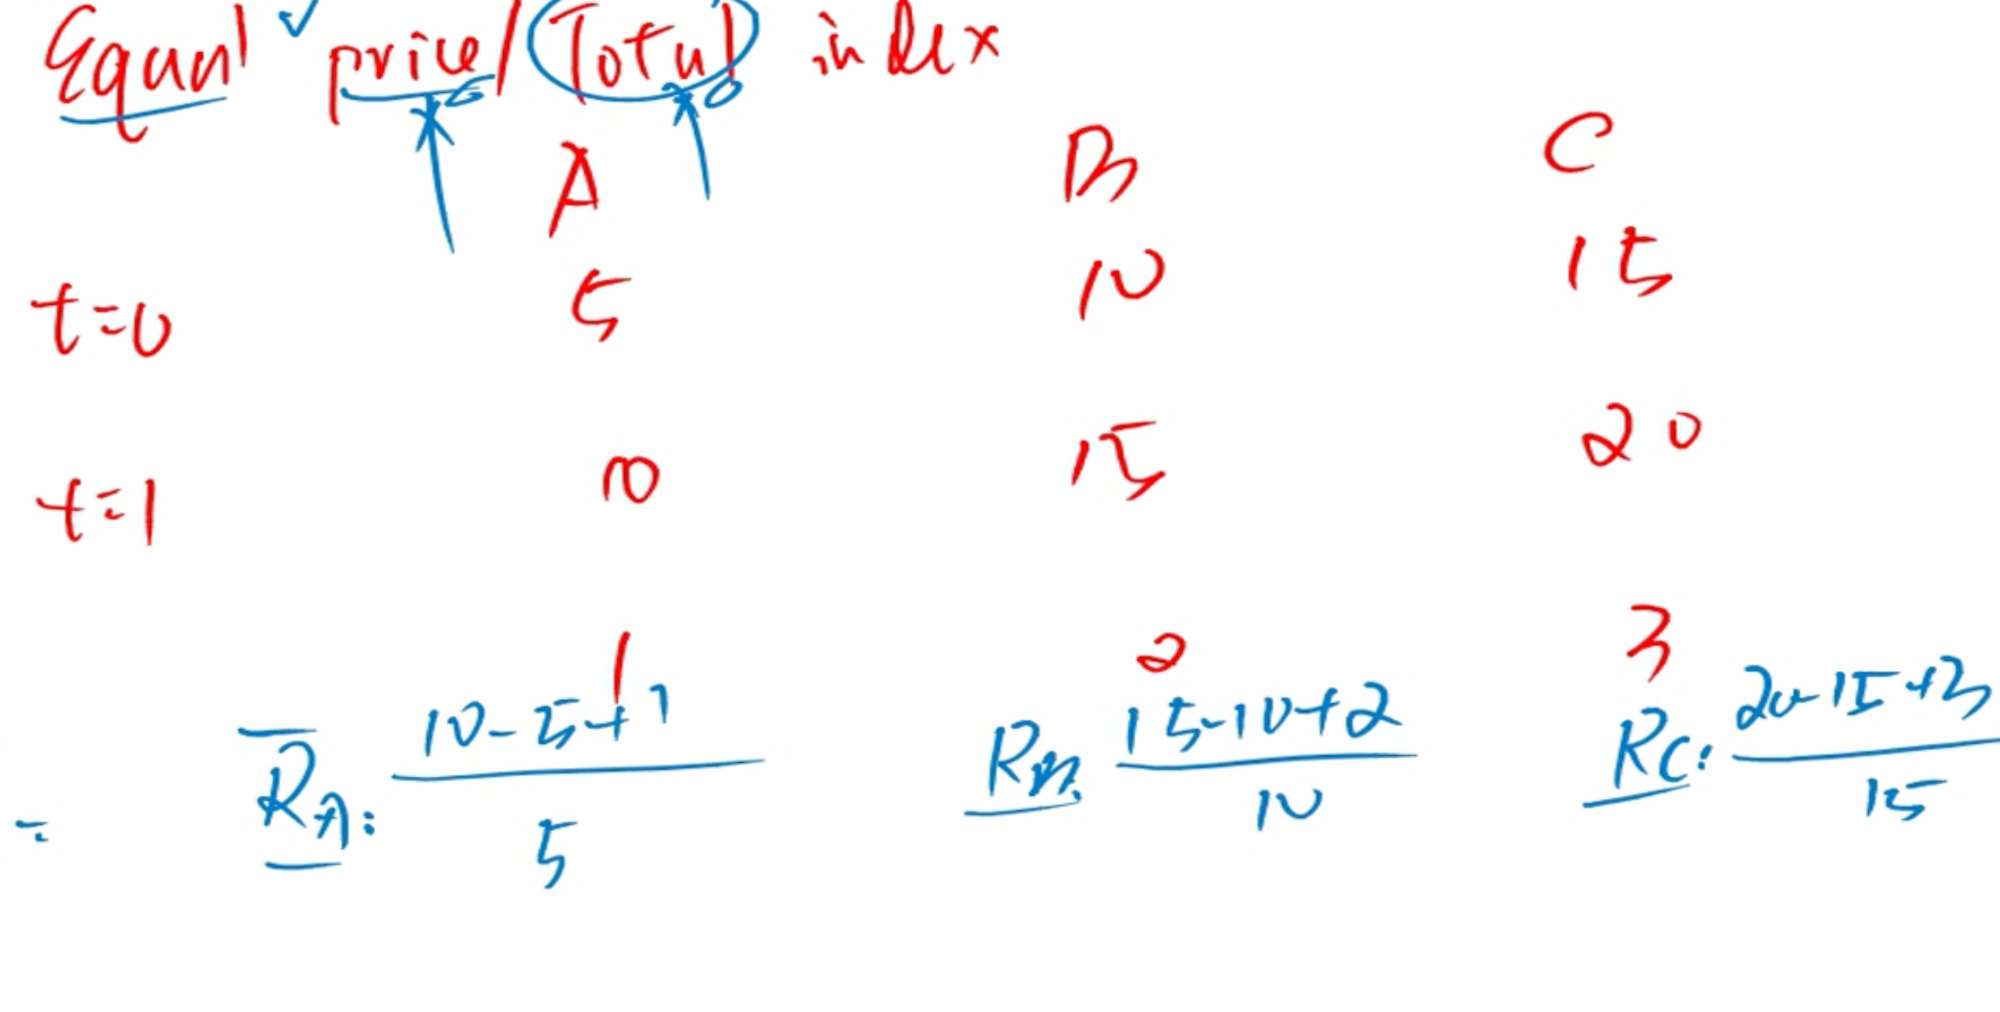 Equal ✓ price/Total index
A B C
t=0 5 10 15
t=1 10 15 20
1 2 3
10-5+1 15-10+2 20-15+3
= RA: RB: RC:
5 10 15